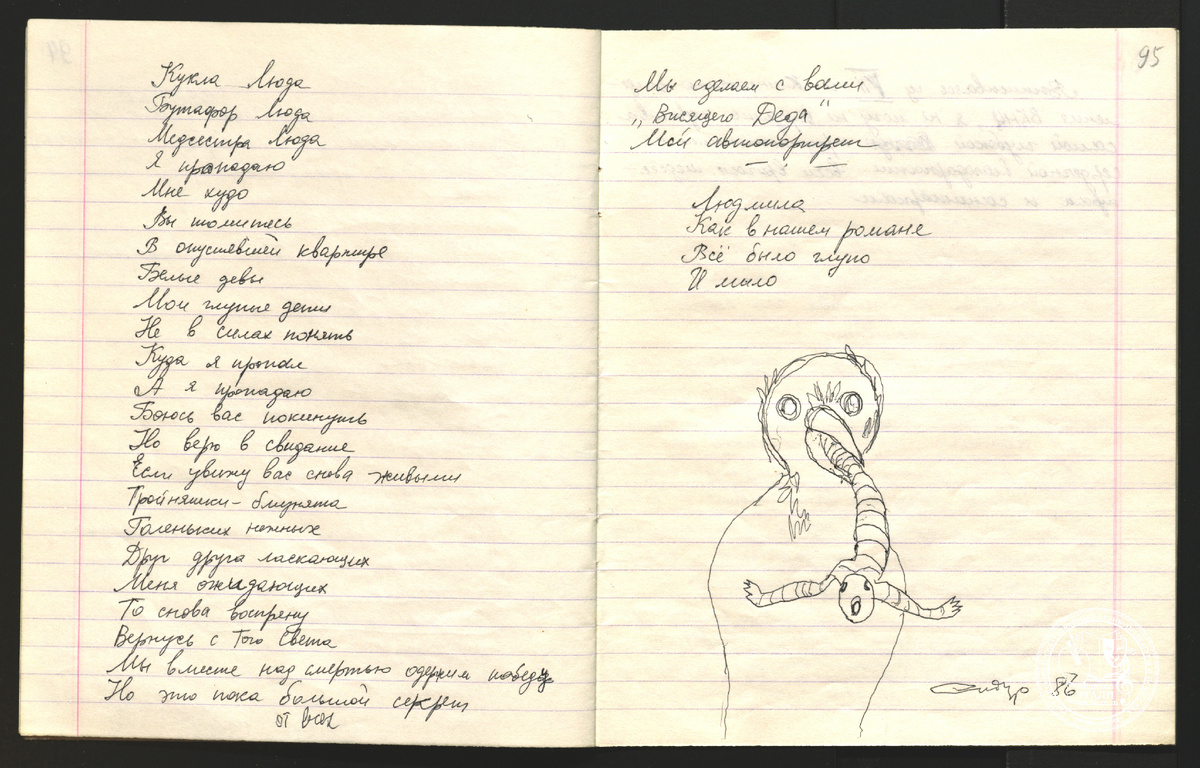 Кукла Люда
Бутафор Люда
Медсестра Люда
Я пропадаю
Мне худо
Вы томитесь
В опустевшей квартире
Белые девы
Мои глупые дети
Не в силах понять
Куда я пропал
А я пропадаю
Боюсь вас покинуть
Но верю в свидание
Если увижу вас снова живыми
Тройняшки-близнята
Голеньких нежных
Друг друга ласкающих
Меня ожидающих
То снова воспряну
Вернусь с Того Света
Мы вместе над смертью одержим победу
Но это пока большой секрет
от всех
95
Мы сделаем с вами
„Висящего Деда"
Мой автопортрет
Людмила
Как в нашем романе
Всё было глупо
И мило
86